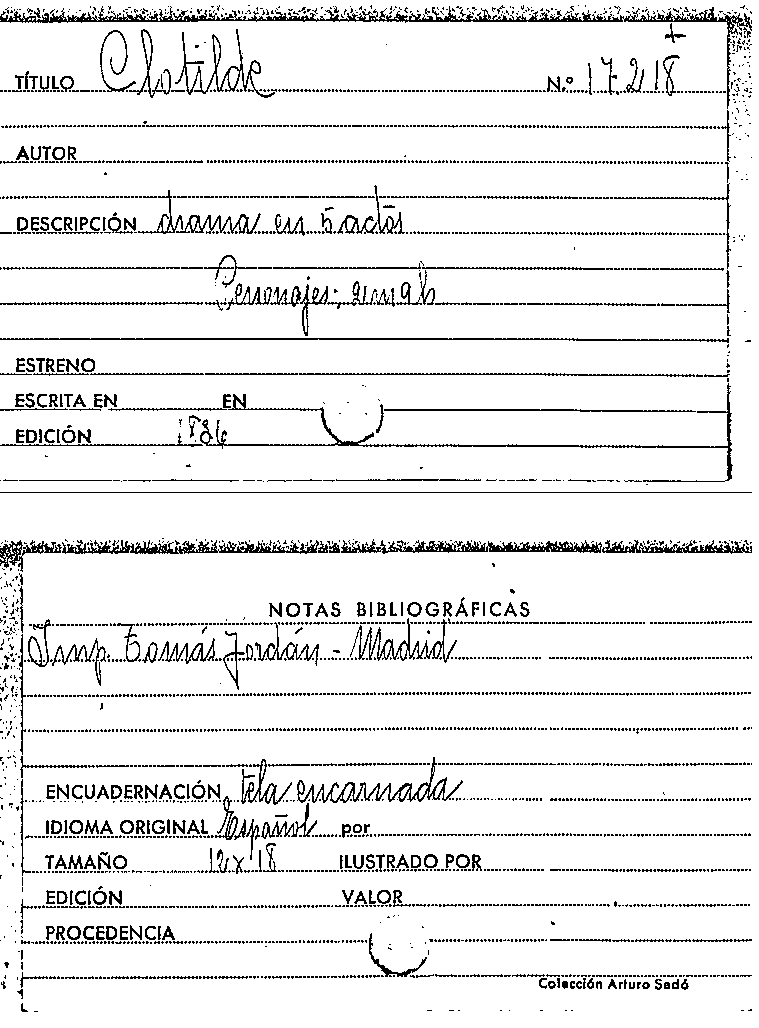 +
TÍTULO Clotilde N.º 17218
AUTOR
DESCRIPCIÓN drama en 5 actos
Personajes; 2m 9h
ESTRENO
ESCRITA EN EN
EDICIÓN 1836
NOTAS BIBLIOGRÁFICAS
Imp. Tomás Jordán - Madrid
ENCUADERNACIÓN tela encarnada
IDIOMA ORIGINAL Español por
TAMAÑO 12 x 18 ILUSTRADO POR
EDICIÓN VALOR
PROCEDENCIA
Colección Arturo Sedó